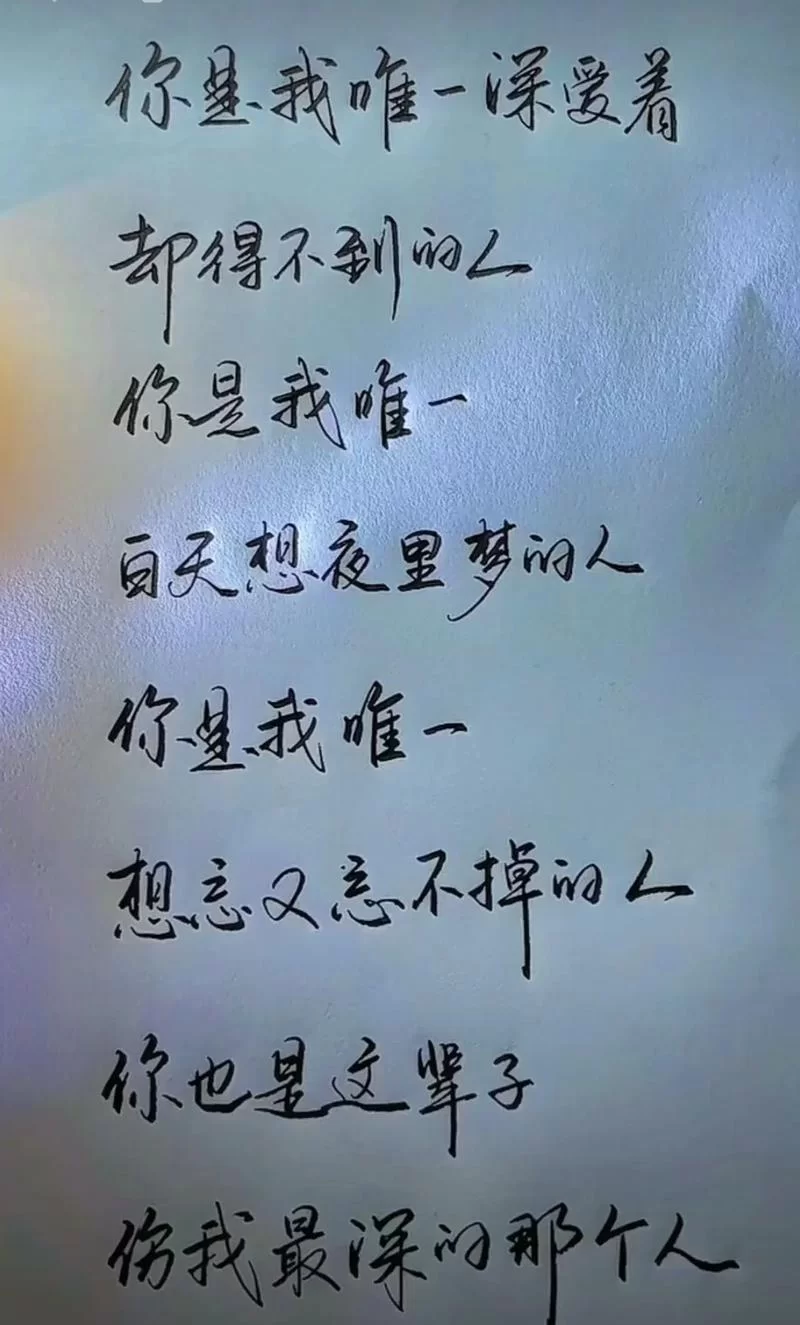 你是我唯一深爱着
却得不到的人
你是我唯一
白天想夜里梦的人
你是我唯一
想忘又忘不掉的人
你也是这辈子
伤我最深的那个人